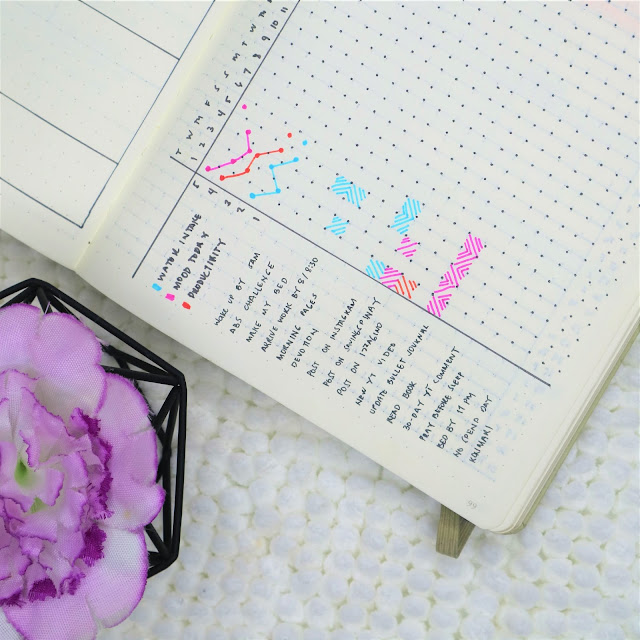 1 2 3 4 5 6 7 8 9 10 11
5 4 3 2 1
WATER INTAKE
MOOD TODAY
PRODUCTIVITY
WAKE UP BY 5AM
ABS CHALLENGE
MAKE MY BED
ARRIVE WORK BY 8/830
MORNING PAGES
DEVOTION
POST ON INSTAGRAM
POST ON
POST ON
NEW YT VIDEO
UPDATE BULLET JOURNAL
READ BOOK
30-DAY YT COMMENT
PRAY BEFORE SLEEP
BED BY 11 PM
NO OUT